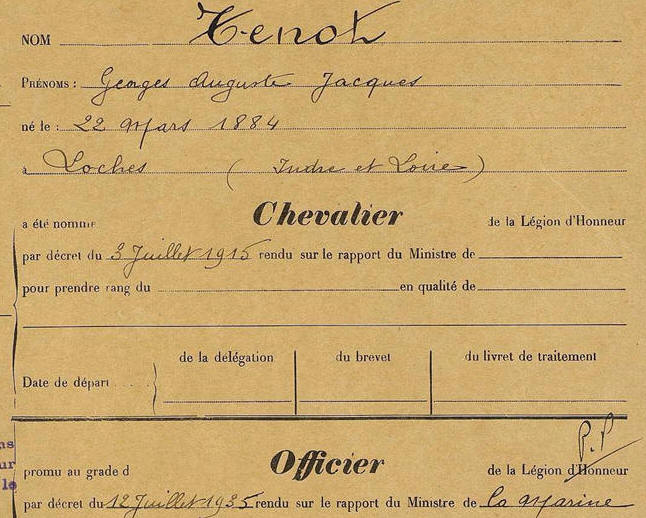 NOM Tenot
PRÉNOMS : Georges Auguste Jacques
né le : 22 Mars 1884
à Loches (Indre et Loire)
a été nommé Chevalier de la Légion d'Honneur
par décret du 3 Juillet 1915 rendu sur le rapport du Ministre de
pour prendre rang du en qualité de
de la délégation du brevet du livret de traitement
Date de départ
P.P
promu au grade d Officier de la Légion d'Honneur
par décret du 12 Juillet 1935 rendu sur le rapport du Ministre de la Marine